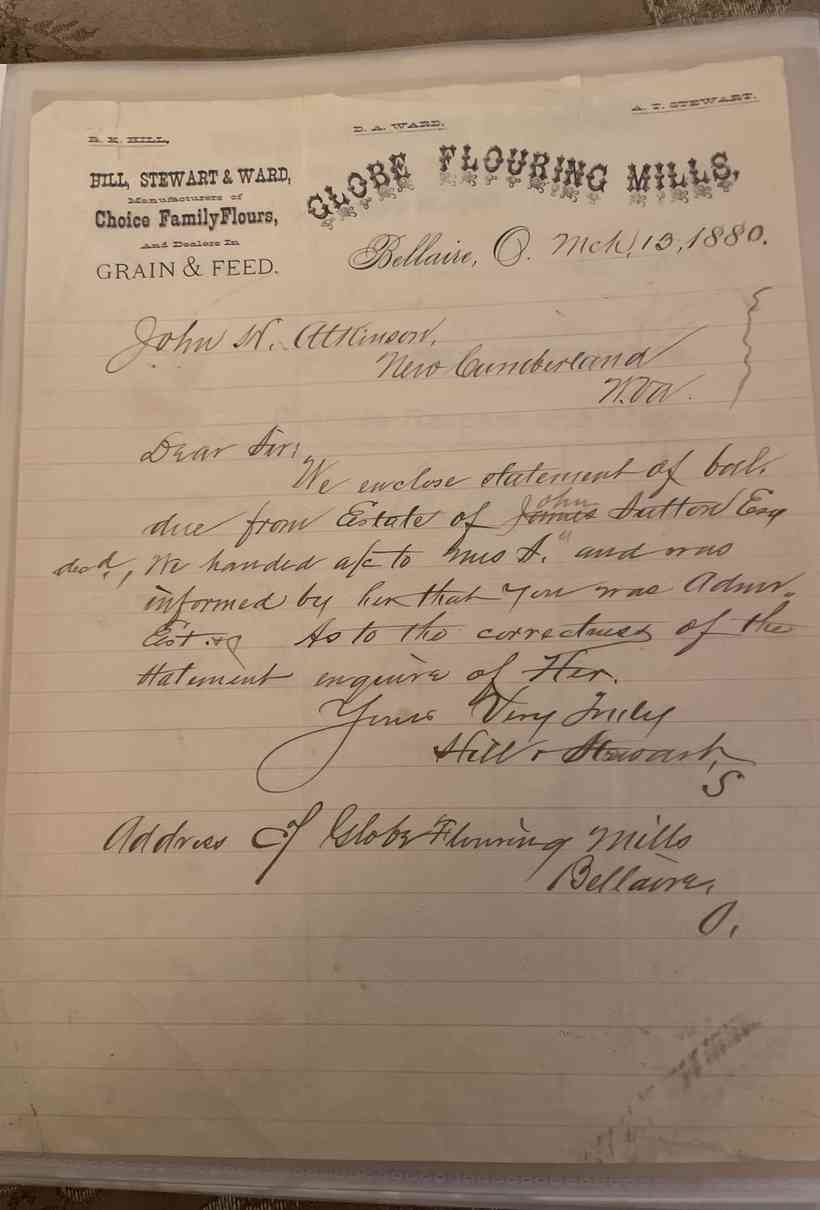 D. A. WARD.
A. T. STEWART.
HILL, STEWART & WARD,
Manufacturers of
Choice Family Flours,
And Dealers In
GRAIN & FEED.
GLOBE FLOURING MILLS,
Bellaire, O. Mch, 13, 1880.
John W. Atkinson,
New Cumberland
W.Va.
Dear Sir;
We enclose statement of bal.
due from Estate of John Sutton Esq
decd, We handed a/c to Mrs S. and was
informed by her that You was Admr.
Est. As to the correctness of the
statement enquire of Her.
Yours Very Truly
Hill & Stewart,
S
Address C/ Globe Flouring Mills
Bellaire,
O.